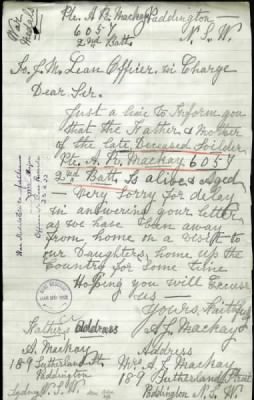 Pte. A R Mackay Paddington
6057
2nd Batt. N. S. W
To J M Lean Officer in Charge
Dear Sir.
Just a line to Inform you
that the Father & Mother
of the Late Deceased Soilder.
Pte. A. R. Mackay. 6057
2nd Batt. Is alive & Aged
Very Sorry for delay
in answering your letter
as we have been away
from home on a visit to
our Daughters home up the
Country for Some time
Hoping you will Excuse
us —
Yours. Faithfully
A J Mackay
Fathers address
A. Mackay
189 Sutherland St.
Paddington
Sydney N. S. W
Address
Mrs A. J. Mackay
189 Sutherland Street
Paddington N. S. W